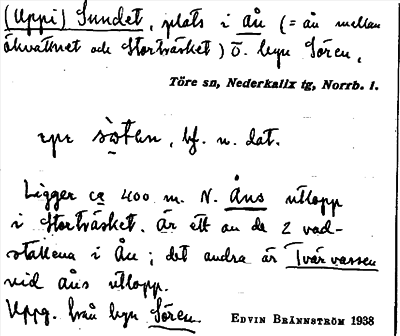 (Uppi) Sundet, plats i ån (= ån mellan
åkvattnet och Storträsket) ö. byn Sören,
Töre sn, Nederkalix tg, Norrb. l.
bf. n. dat.
Ligger ca 400 m. N. åns utlopp
i Storträsket. Är ett av de 2 vad-
ställena i ån; det andra är Tvärvassen
vid åns utlopp.
Uppg. från byn Sören. EDVIN BRÄNNSTRÖM 1938